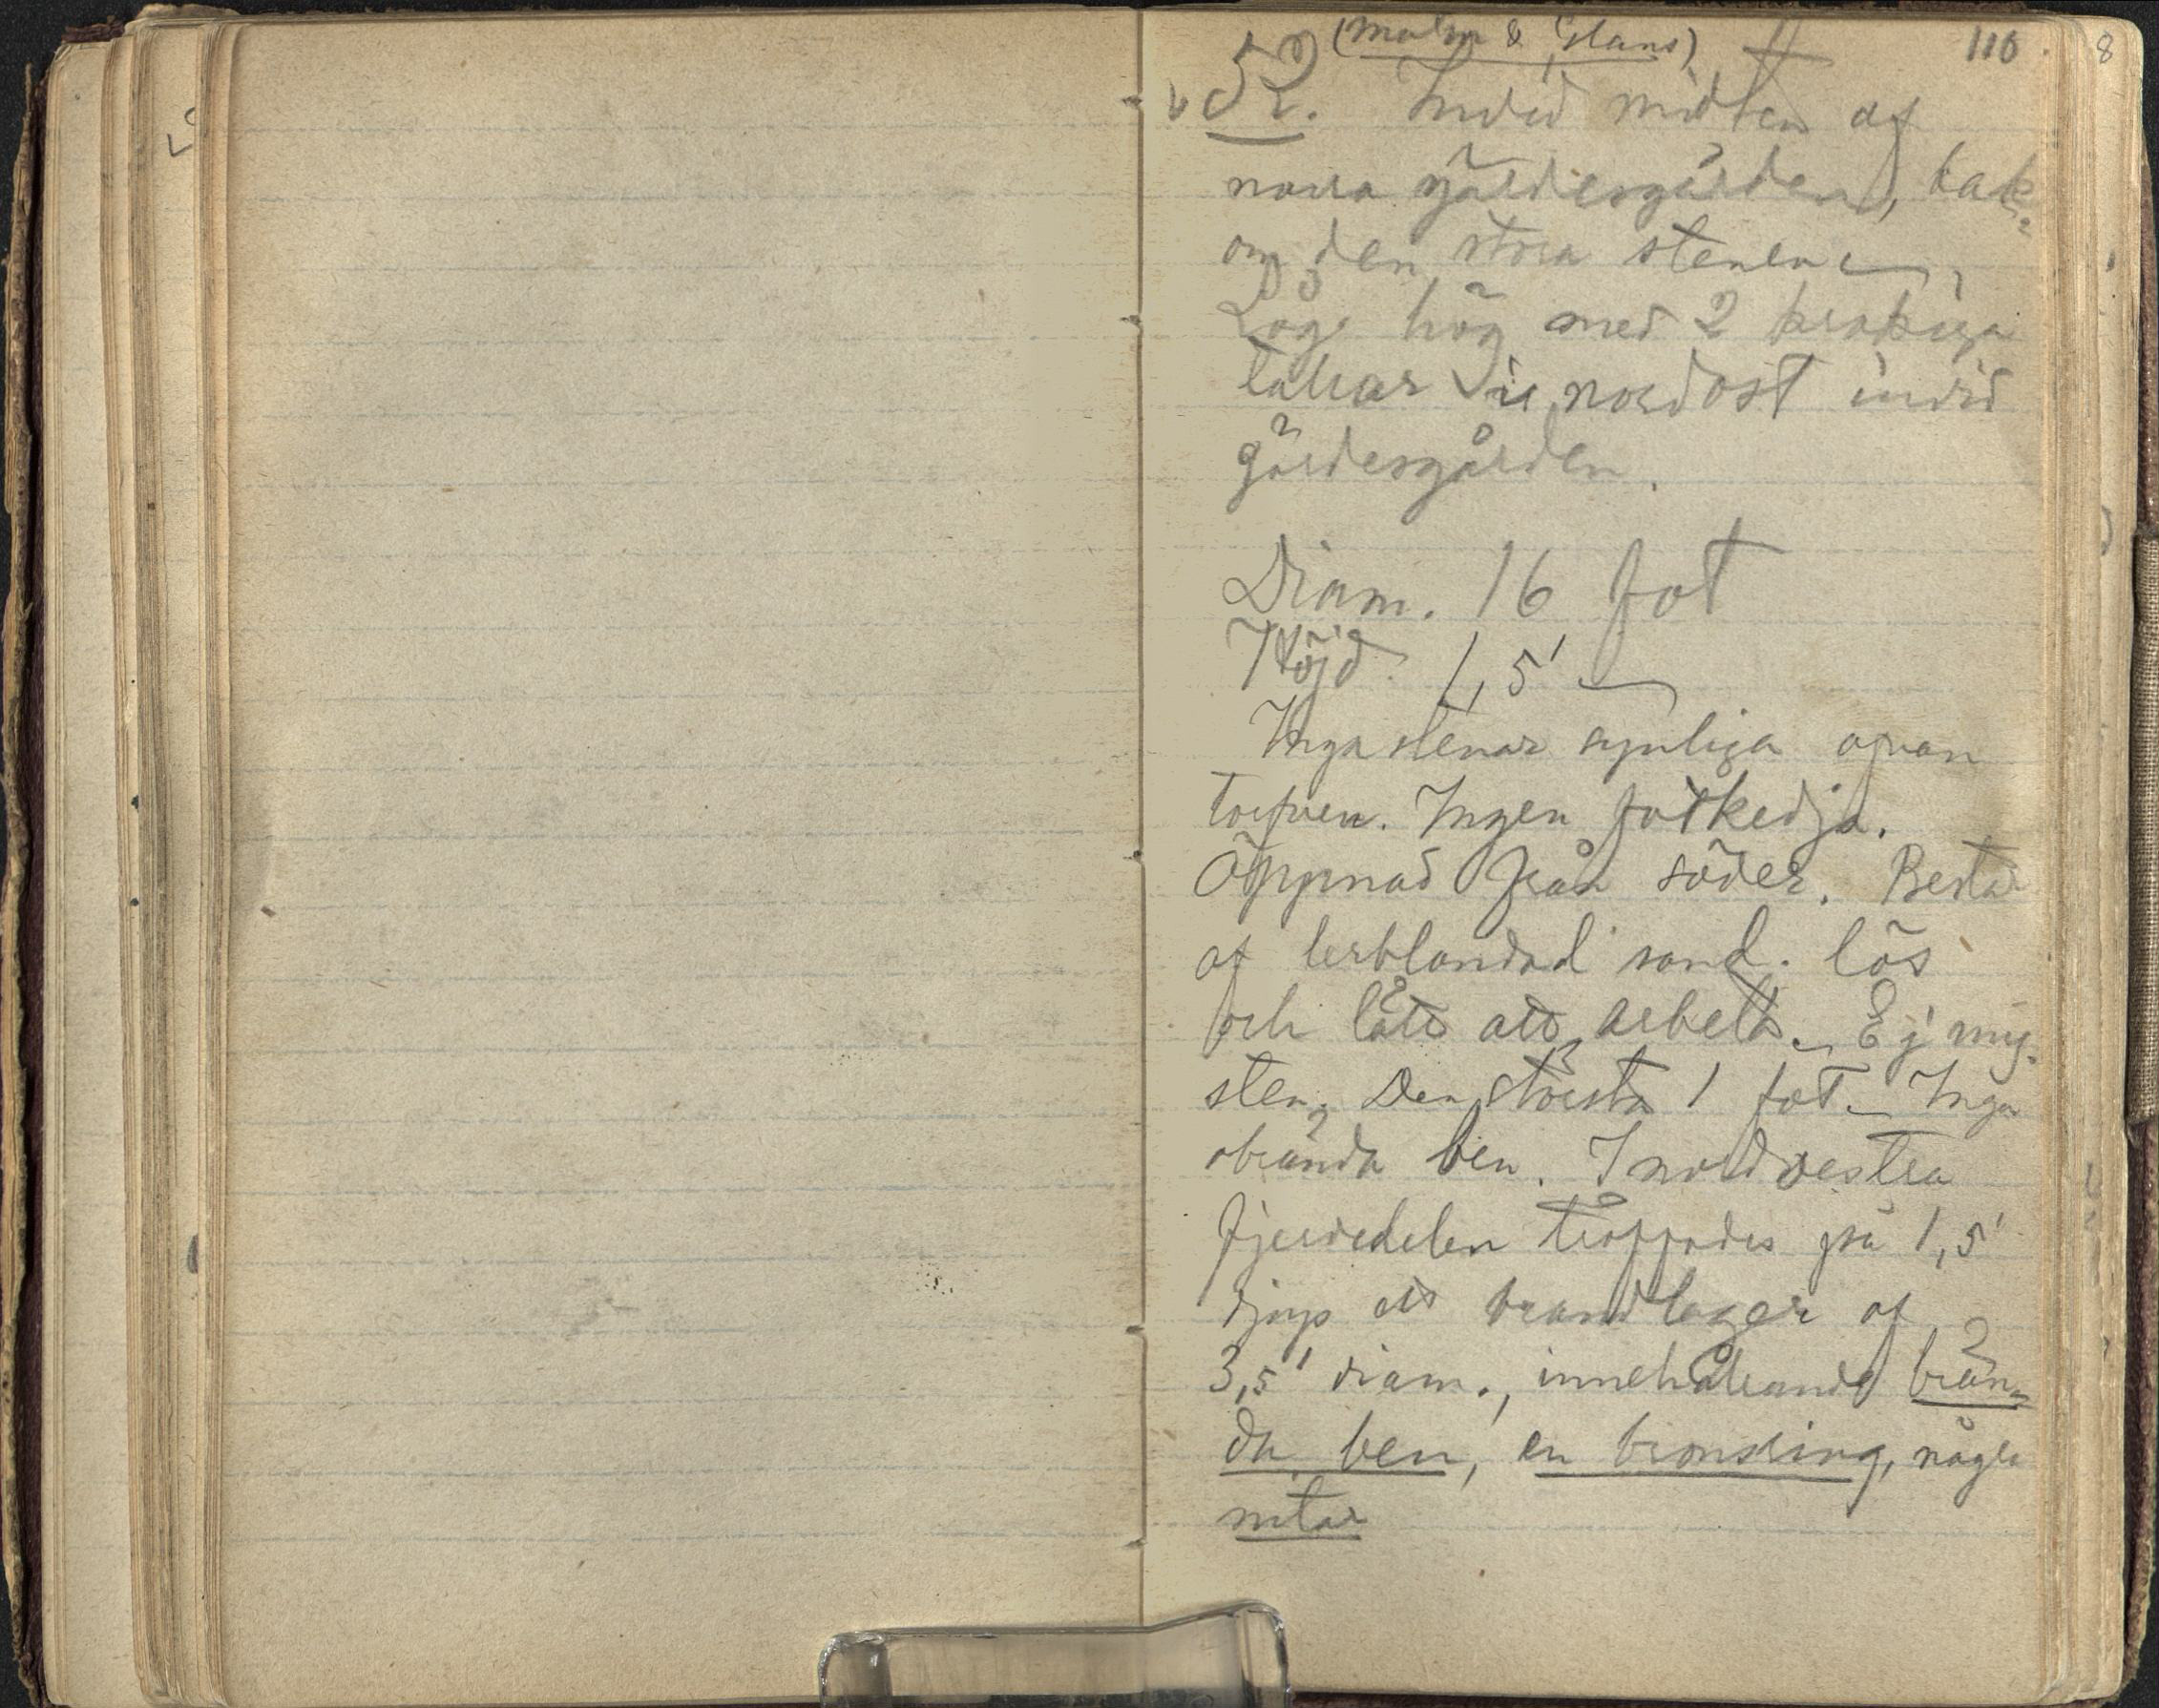 (Malm & Glans) 110
52. Invid midten af
norra gärdesgården, bak-
om den stora stenen
Låg hög med 2 krokiga
tallar i nordost invid
gärdesgården.
Diam. 16 fot
Höjd. 1,5'
Inga stenar synliga ofvan
torfven. Ingen fotkedja.
Öppnad från söder. Består
af lerblandad sand. lös
och lätt att arbeta. Ej my.
sten. Den största 1 fot. Inga
obrända ben. I nordvestra
fjerdedelen träffades på 1,5'
djup ett brandlager af
3,5' diam., innehållande brän-
da ben, en bronsring, några
nitar